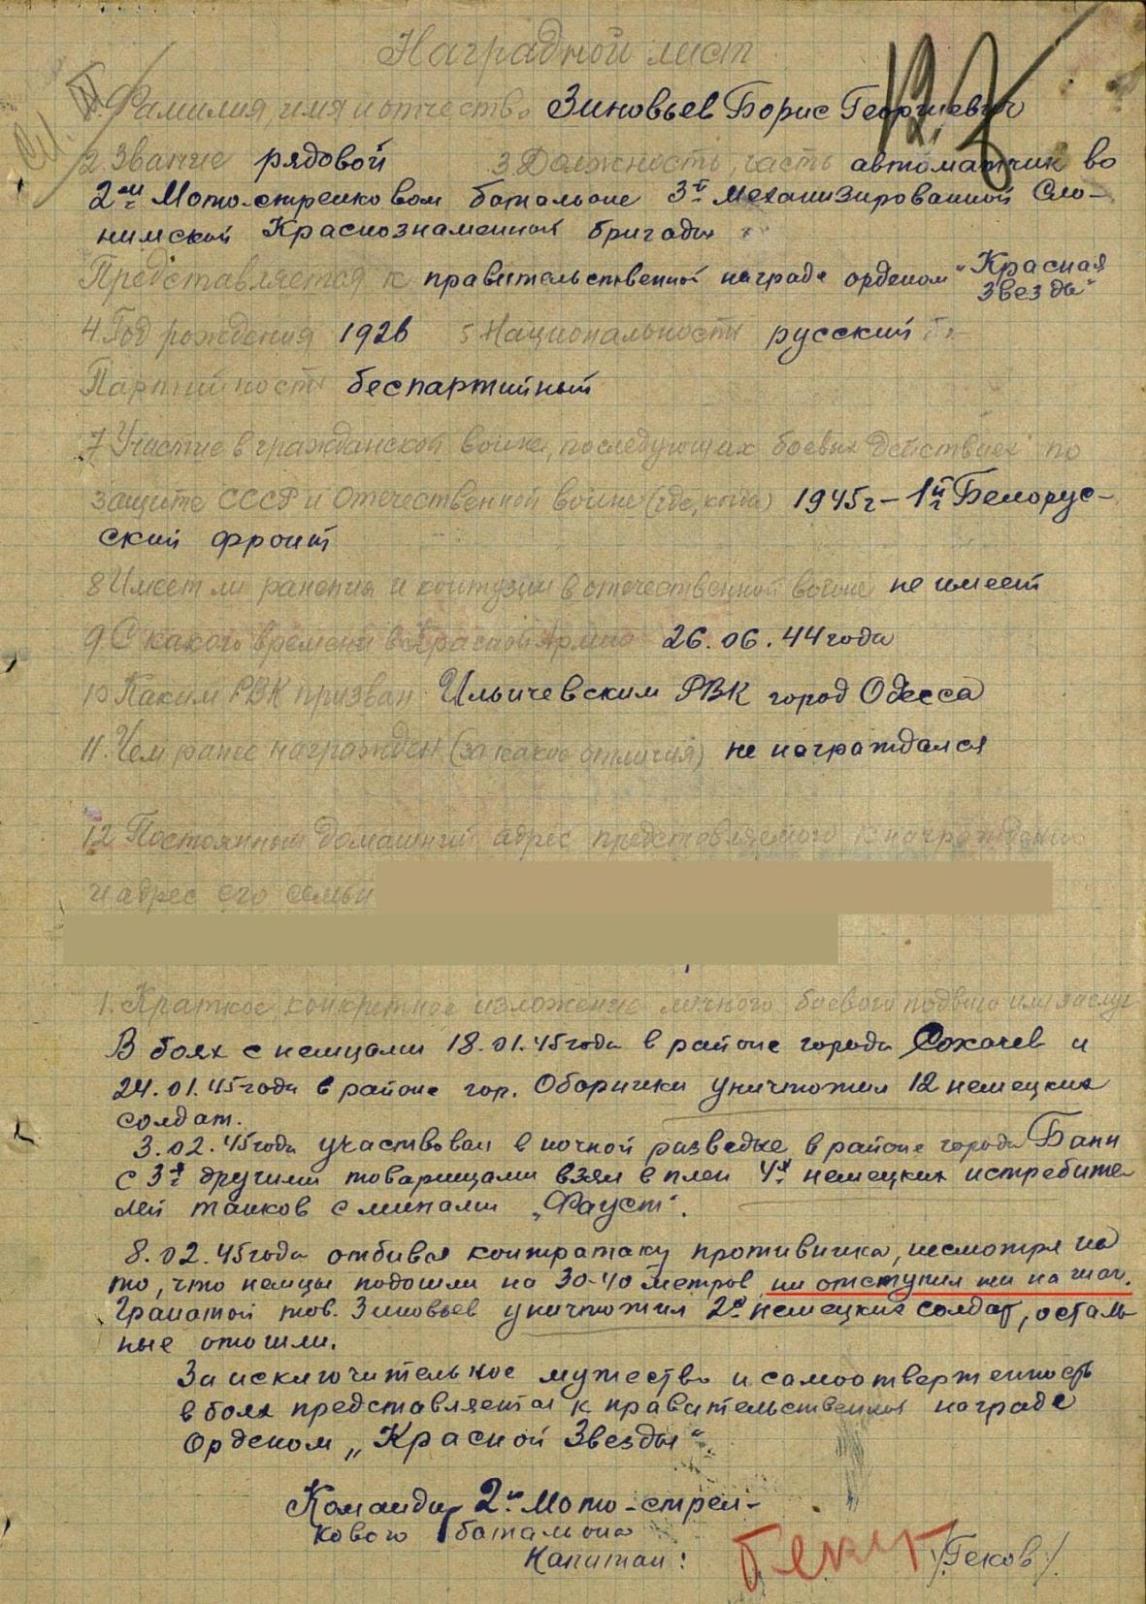 Наградной лист
1. Фамилия, имя и отчество Зиновьев Борис Георгиевич
2 Звание рядовой 3 Должность, часть автоматчик во
2ом Мото-стрелковом батальоне 3й Механизированной Сло-
нимской Краснознаменной бригады
Представляется к правительственной награде орденом "Красная
Звезды"
4 Год рождения 1926 5 Национальность русский
Партийность беспартийный
7 Участие в гражданской войне, последующих боевых действиях по
защите СССР и Отечественной войне (где, когда) 1945г – 1й Белорус-
ский фронт
8 Имеет ли ранения и контузии в отечественной войне не имеет
9 С какого времени в Красной Армии 26.06.44 года
10 Каким РВК призван Ильичевским РВК город Одесса
11. Чем ранее награжден (за какие отличия) не награждался
12 Постоянный домашний адрес представляемого к награждению
и адрес его семьи
1. Краткое, конкретное изложение личного боевого подвига или заслуг
В боях с немцами 18.01.45 года в районе города Сохачев и
24.01.45 года в районе гор. Оборники уничтожил 12 немецких
солдат.
3.02.45 года участвовал в ночной разведке в районе города Банн
с 3я другими товарищами взял в плен 4х немецких истребите
лей танков с минами „Фауст".
8.02.45 года отбивая контратаку противника, несмотря на
то, что немцы подошли на 30-40 метров ни отступил ни на шаг.
Гранатой тов. Зиновьев уничтожил 2х немецких солдат, осталь-
ные отошли.
За исключительное мужество и самоотверженность
в боях представляется к правительственной награде
Орденом „Красной Звезды".
Командир 2го Мото-стрел-
кового батальона
Капитан: Геков /Геков/